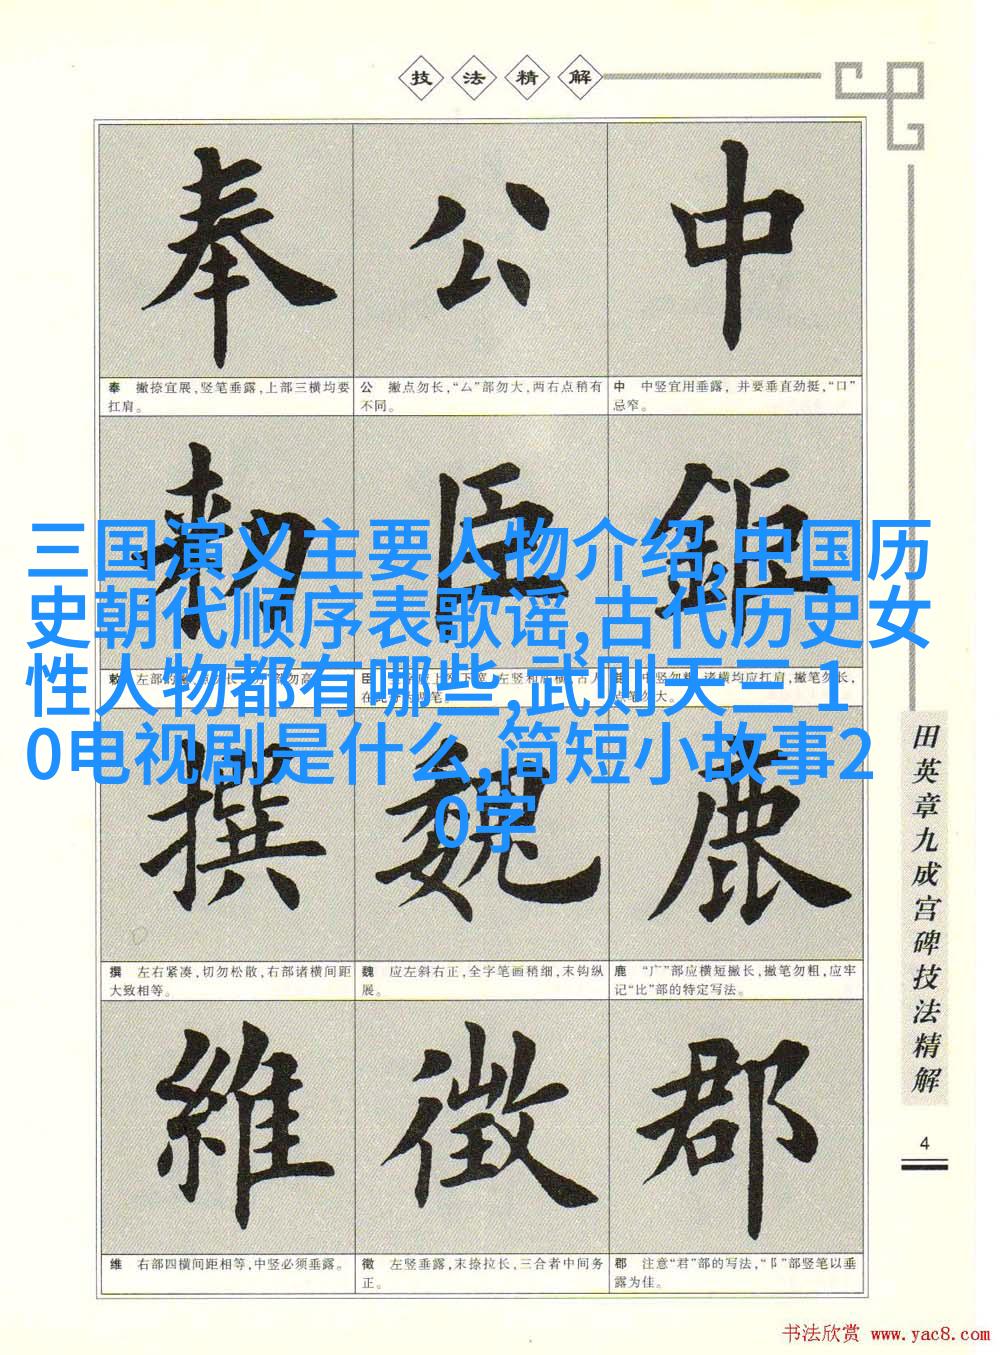 技法精解
奉 公 中
奉 撇捺宜展,竖笔垂露,上部三横均要
扛肩。
公 撇点勿长,“厶”部勿大,两右点稍有
不同。
中 中竖宜用垂露, 并要垂直劲挺,“口”
忌窄。
勑 臣 鉅
三国演义主要人物介绍,中国历
史朝代顺序表歌谣,古代历史女
性人物都有哪些,武则天三 1
0电视剧是什么,简短小故事2
0字
撰 魏 鹿
撰 左右紧凑,切勿松散,右部诸横间距
大致相等。
魏 应左斜右正,全字笔画稍细,末钩纵
展。
鹿 “广”部应横短撇长,撇笔勿粗,应牢
记“比”部的特定写法。
維 徵 郡
维 右部四横间距相等,中竖必须垂露。
徵 左竖垂露,末捺拉长,三合者中间务
正。
郡 注意“君”部的写法,“阝”部竖笔以垂
露为佳。
田英章九成宫碑技法精解
4
书法欣赏 www.yac8.com